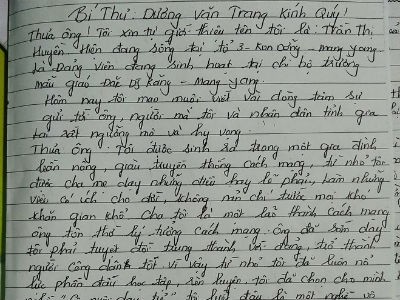 Bí Thư: Dương Văn Trang Kính Quý!
Thưa ông! Tôi xin tự giới thiệu tên tôi là: Trần Thị
Huyền. Hiện đang sống tại tổ 3 - Kon Dơng - mang yang
Là Đảng viên đang sinh hoạt tại chi bộ trường
mẫu giáo Đăk Djrăng - Mang yang.
Hôm nay tôi mạo muội viết vài dòng tâm sự
gửi tới ông, người mà tôi và nhân dân tỉnh gia
lai rất ngưỡng mộ và hy vọng.
Thưa ông: Tôi được sinh ra trong một gia đình
thuần nông, giàu truyền thống cách mạng, từ nhỏ tôi
được cha mẹ dạy những điều hay lẽ phải, Làm những
việc có ích cho đời, không nản chí trước mọi khó
khăn gian khổ. Cha tôi là một lão thành cách mạng
ông tôn thờ lý tưởng cách mạng. Ông đã răn dạy
tôi phải tuyệt đối trung thành, với đảng, trở thành
người công dân tốt vì vậy từ nhỏ tôi đã luôn nỗ
lực phấn đấu học tập, rèn luyện, tôi đã chọn cho mình
tôi biết đây là một nghề vô